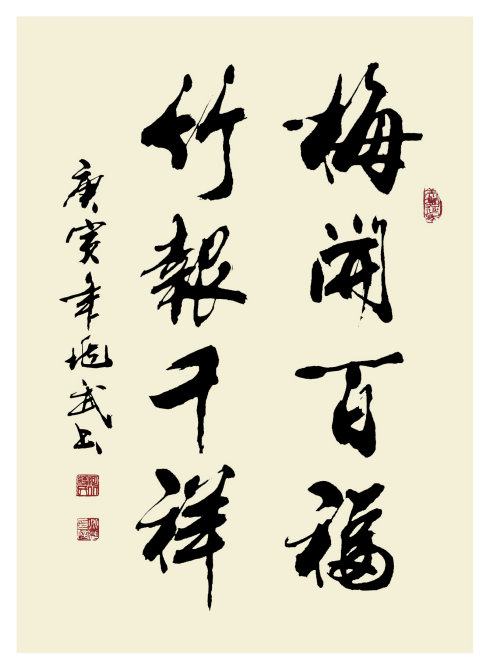 梅開百福
竹報千祥
庚寅年兆武书